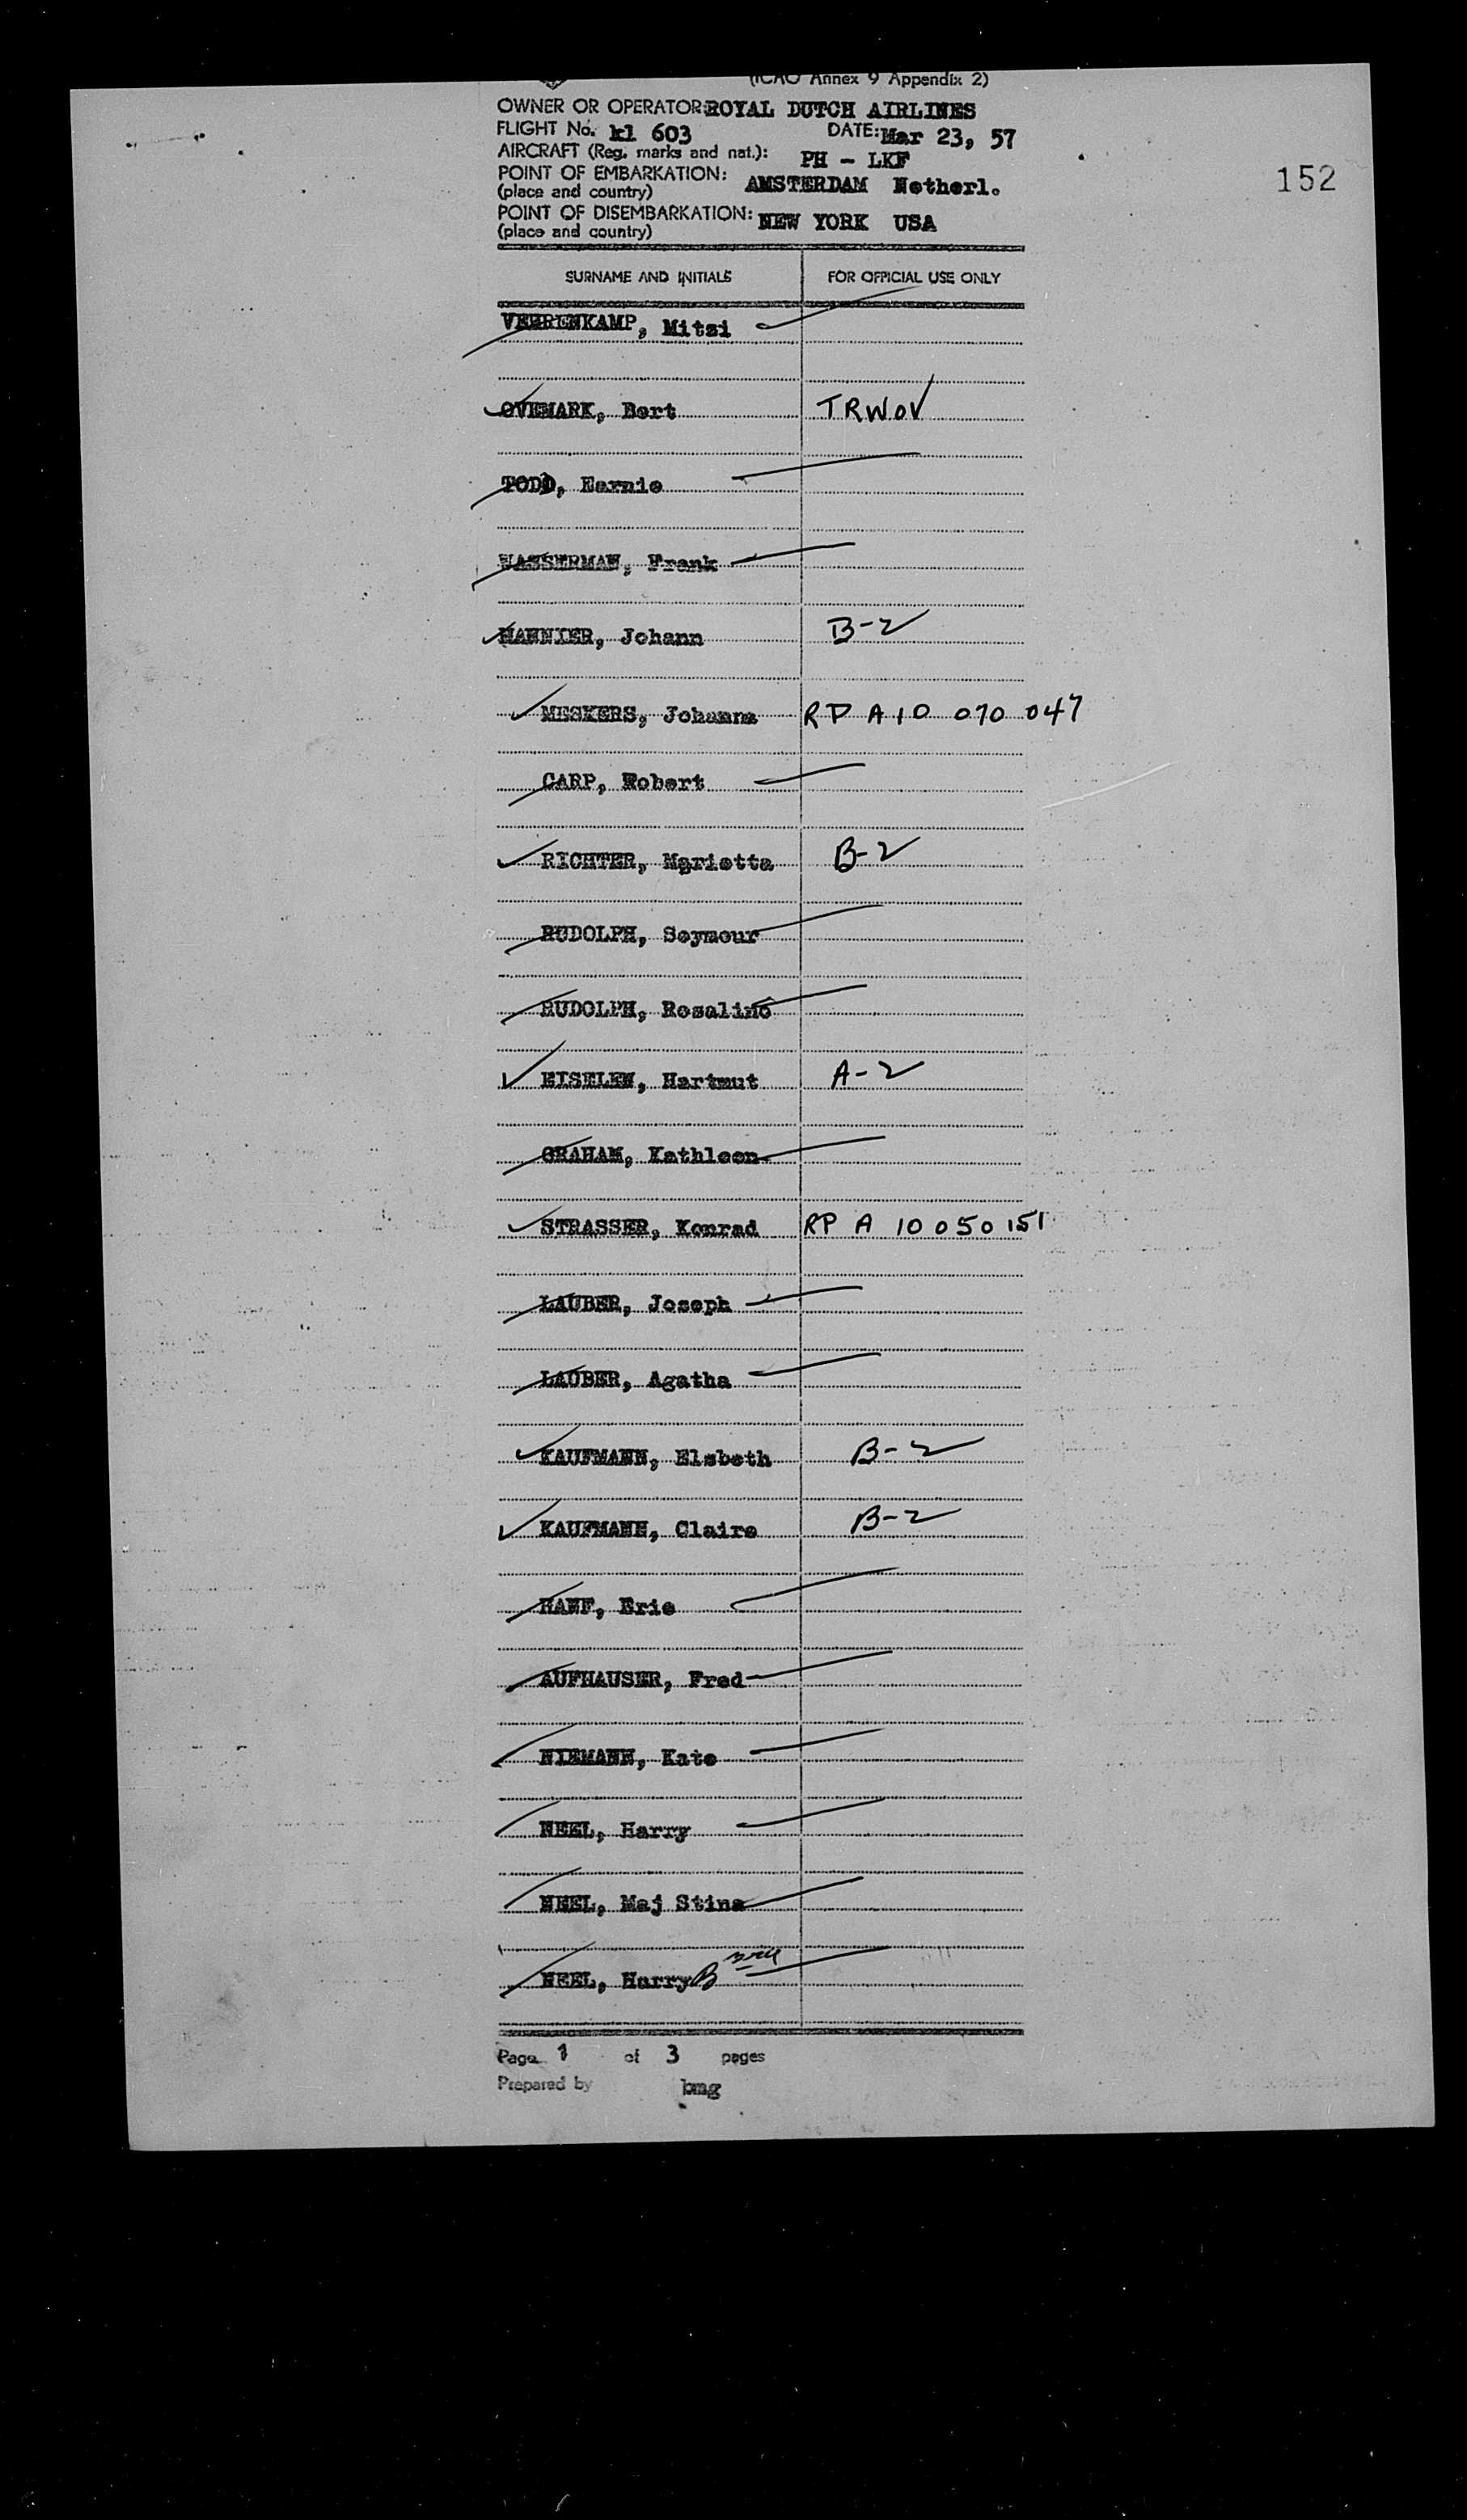 (ICAO Annex 9 Appendix 2)
OWNER OR OPERATOR: ROYAL DUTCH AIRLINES
FLIGHT No. kl 603 DATE: Mar 23, 57
AIRCRAFT (Reg. marks and nat.): PH - LKF
152
POINT OF EMBARKATION: AMSTERDAM Netherl.
(place and country)
POINT OF DISEMBARKATION: NEW YORK USA
(place and country)
SURNAME AND INITIALS FOR OFFICIAL USE ONLY
VEHRENKAMP, Mitzi
OVEMARK, Bert TRWOV
TODD, Earnie
WASSERMAN, Frank
HANNIER, Johann B-2
MESKERS, Johanna RP A10 070 047
CARP, Robert
RICHTER, Marietta B-2
RUDOLPH, Seymour
RUDOLPH, Rosalind
EISELEN, Hartmut A-2
GRAHAM, Kathleen
STRASSER, Konrad RP A 10 050 151
LAUBER, Joseph
LAUBER, Agatha
KAUFMANN, Elsbeth B-2
KAUFMANN, Claire B-2
HANF, Erie
AUFHAUSER, Fred
NIEMANN, Kate
NEEL, Harry
NEEL, Maj Stina
NEEL, Harry B
Page 1 of 3 pages
Prepared by bmg